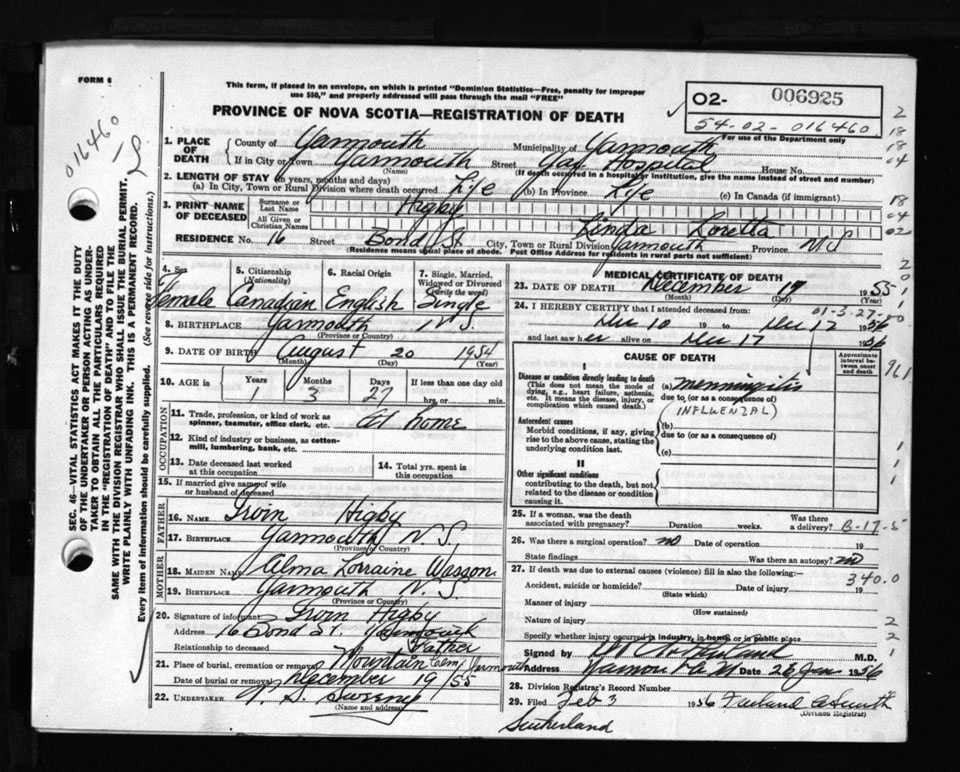 FORM 6
This form, if placed in an envelope, on which is printed "Dominion Statistics—Free, penalty for improper
use $50," and properly addressed will pass through the mail "FREE"
PROVINCE OF NOVA SCOTIA—REGISTRATION OF DEATH
02- 006925
54-02-016460
For use of the Department only
016460
1. PLACE OF DEATH
County of Yarmouth Municipality of Yarmouth
If in City or Town Yarmouth Street Yar Hospital House No.
(Name) (If death occurred in a hospital or institution, give the name instead of street and number)
2. LENGTH OF STAY (in years, months and days)
(a) In City, Town or Rural Division where death occurred Life (b) In Province Life (c) In Canada (if immigrant)
3. PRINT NAME OF DECEASED
Surname or Last Name Higby
All Given or Christian Names Linda Loretta
RESIDENCE No. 16 Street Bond St. City, Town or Rural Division Yarmouth Province N.S
(Residence means usual place of abode. Post Office Address for residents in rural parts not sufficient)
4. Sex Female
5. Citizenship (Nationality) Canadian
6. Racial Origin English
7. Single, Married, Widowed or Divorced (Write the word) Single
8. BIRTHPLACE Yarmouth N.S.
(Province or Country)
9. DATE OF BIRTH August 20 1954
(Month) (Day) (Year)
10. AGE in Years 1 Months 3 Days 27 If less than one day old hrs. or min.
OCCUPATION
11. Trade, profession, or kind of work as spinner, teamster, office clerk, etc. At home
12. Kind of industry or business, as cotton-mill, lumbering, bank, etc.
13. Date deceased last worked at this occupation
14. Total yrs. spent in this occupation
15. If married give name of wife or husband of deceased
FATHER
16. NAME Irvin Higby
17. BIRTHPLACE Yarmouth N.S.
(Province or Country)
MOTHER
18. MAIDEN NAME Alma Lorraine Wasson
19. BIRTHPLACE Yarmouth N.S.
(Province or Country)
20. Signature of informant Irvin Higby
Address 16 Bond St. Yarmouth
Relationship to deceased Father
21. Place of burial, cremation or removal Mountain Cem, Yarmouth
Date of burial or removal December 19/55
22. UNDERTAKER Sweeney
(Name and address)
MEDICAL CERTIFICATE OF DEATH
23. DATE OF DEATH December 17 1955
(Month) (Day) (Year)
24. I HEREBY CERTIFY that I attended deceased from:
01-3-27-00
Dec 10 19 to Dec 17 1956
and last saw her alive on Dec 17 1956
CAUSE OF DEATH
Approximate interval between onset and death
I
Disease or condition directly leading to death
(This does not mean the mode of dying, e.g., heart failure, asthenia, etc. It means the disease, injury, or complication which caused death.)
(a) Menningitis
due to (or as a consequence of)
(INFLUENZAL)
Antecedent causes
Morbid conditions, if any, giving rise to the above cause, stating the underlying condition last.
(b)
due to (or as a consequence of)
(c)
II
Other significant conditions
contributing to the death, but not related to the disease or condition causing it.
961
25. If a woman, was the death associated with pregnancy? Duration weeks. Was there a delivery? B-17-5
26. Was there a surgical operation? no Date of operation 19
State findings Was there an autopsy? no
27. If death was due to external causes (violence) fill in also the following:— 340.0
Accident, suicide or homicide? Date of injury 19
(State which)
Manner of injury
(How sustained)
Nature of injury
Specify whether injury occurred in industry, in home, or in public place
Signed by M.D.
Address Date 26 Jan 1956
28. Division Registrar's Record Number
29. Filed Feb 3 1956
(Division Registrar)
Sutherland
SEC. 46—VITAL STATISTICS ACT MAKES IT THE DUTY
OF THE UNDERTAKER OR PERSON ACTING AS UNDER-
TAKER TO OBTAIN ALL THE PARTICULARS REQUIRED
IN THE "REGISTRATION OF DEATH" AND TO FILE THE
SAME WITH THE DIVISION REGISTRAR WHO SHALL ISSUE THE BURIAL PERMIT.
WRITE PLAINLY WITH UNFADING INK. THIS IS A PERMANENT RECORD.
Every item of information should be carefully supplied. (See reverse side for instructions.)
2
18
18
04
18
04
02
2
0
1
1
1
1
1
2
2
1